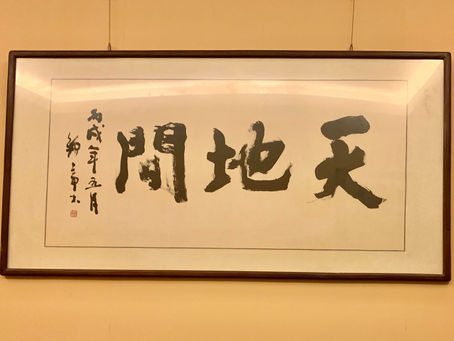 天地間
丙戌年五月